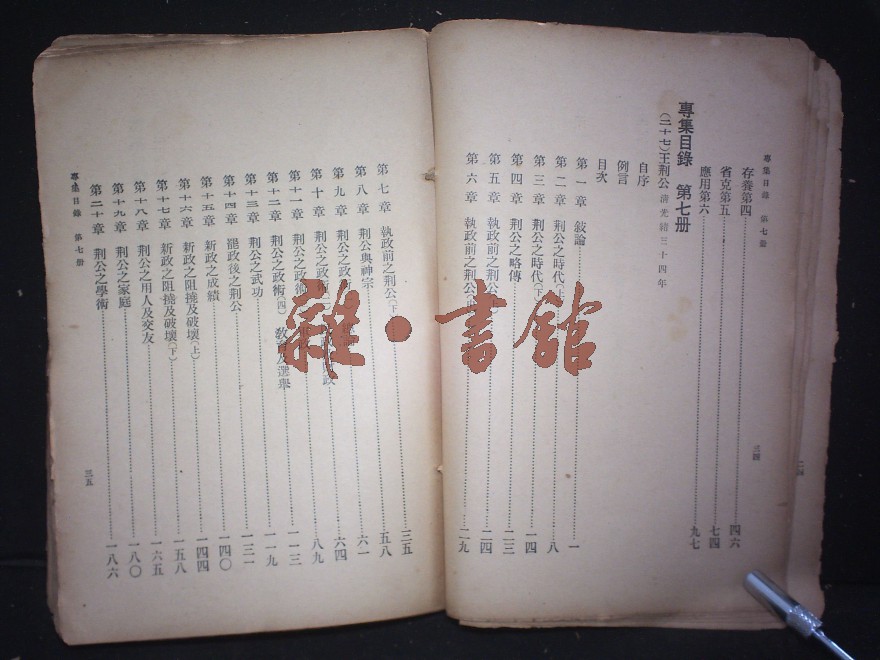 專集目錄 第七册
三四
存養第四 四六
省克第五 七四
應用第六 九七
專集目錄 第七册
(二十七)王荆公 清光緒三十四年
自序
例言
目次
第一章 敍論 一
第二章 荆公之時代( 八
第三章 荆公之時代(下) 一四
第四章 荆公之略傳 二三
第五章 執政前之荆公( 二四
第六章 執政前之荆公( 二九
第七章 執政前之荆公(下) 三五
第八章 荆公與神宗 五八
第九章 荆公之政 六一
第十章 荆公之政術(二) 政 六四
第十一章 荆公之政術 八九
第十二章 荆公之政術(四) 教育及選舉 一一三
第十三章 荆公之武功 一一九
第十四章 罷政後之荆公 一三一
第十五章 新政之成績 一四〇
第十六章 新政之阻撓及破壞(上) 一四四
第十七章 新政之阻撓及破壞(下) 一五八
第十八章 荆公之用人及交友 一六五
第十九章 荆公之家庭 一八〇
第二十章 荆公之學術 一八六
專集目錄 第七册
三五
雜·書館